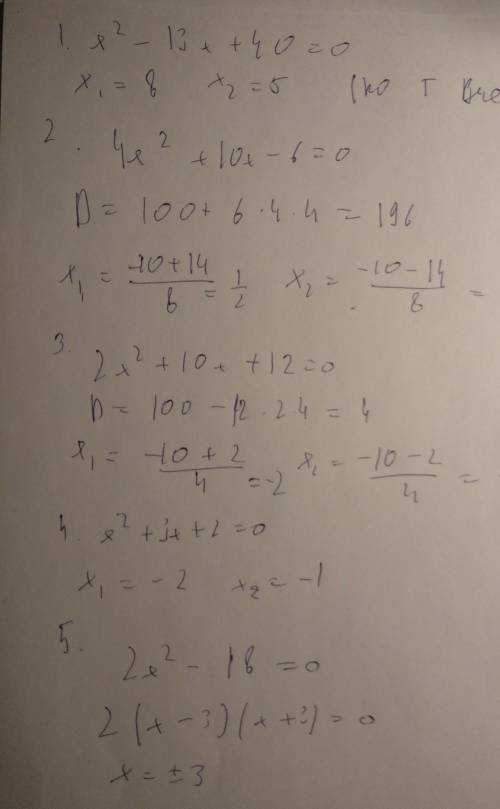 1. x² - 13x + 40 = 0
x₁ = 8 x₂ = 5 (по т Вие
2. 4x² + 10x - 6 = 0
D = 100 + 6·4·4 = 196
x₁ = (-10+14)/8 = 1/2 x₂ = (-10-14)/8 =
3. 2x² + 10x + 12 = 0
D = 100 - 12·2·4 = 4
x₁ = (-10+2)/4 = -2 x₂ = (-10-2)/4 =
4. x² + 3x + 2 = 0
x₁ = -2 x₂ = -1
5. 2x² - 18 = 0
2(x-3)(x+3) = 0
x = ±3